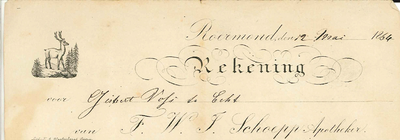 Roermond, den 12 Mai 1864
Rekening
voor Gubert Vossen te Echt
van F. W. J. Schoepp Apotheker.